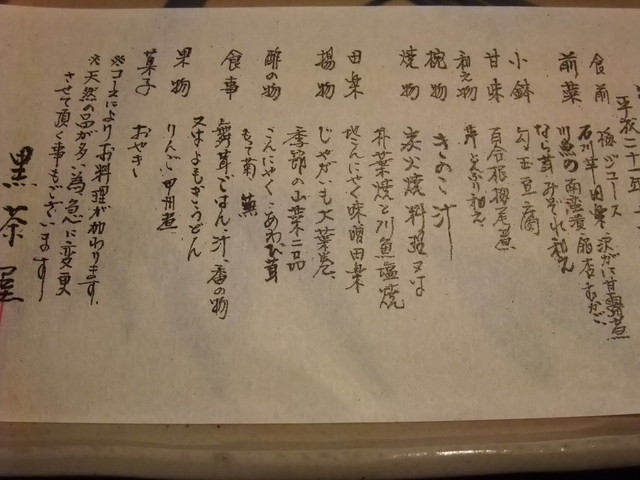 平成二十五
食前 梅ジュース
前菜 石川芋田楽 沢がに甘露煮
川魚の南蛮漬 銀杏 むかご
なら茸みぞれ和え
小鉢 勾玉豆腐
甘味 百合根
和え物 和え
椀物 きのこ汁
焼物 炭火焼料理又は
朴葉焼と川魚塩焼
田楽 地さんにゃく味噌田楽
揚物 じゃがいも大葉
季節の山菜二品
酢の物 こんにゃく こあわび茸
もって菊
食事 舞茸ごはん 汁 香の物
又はよもぎうどん
果物 りんご甲州煮
菓子 おやき
※コースによりお料理が加わります。
※天然の品が多い為急に変更
させて頂く事もございます。
黒茶屋